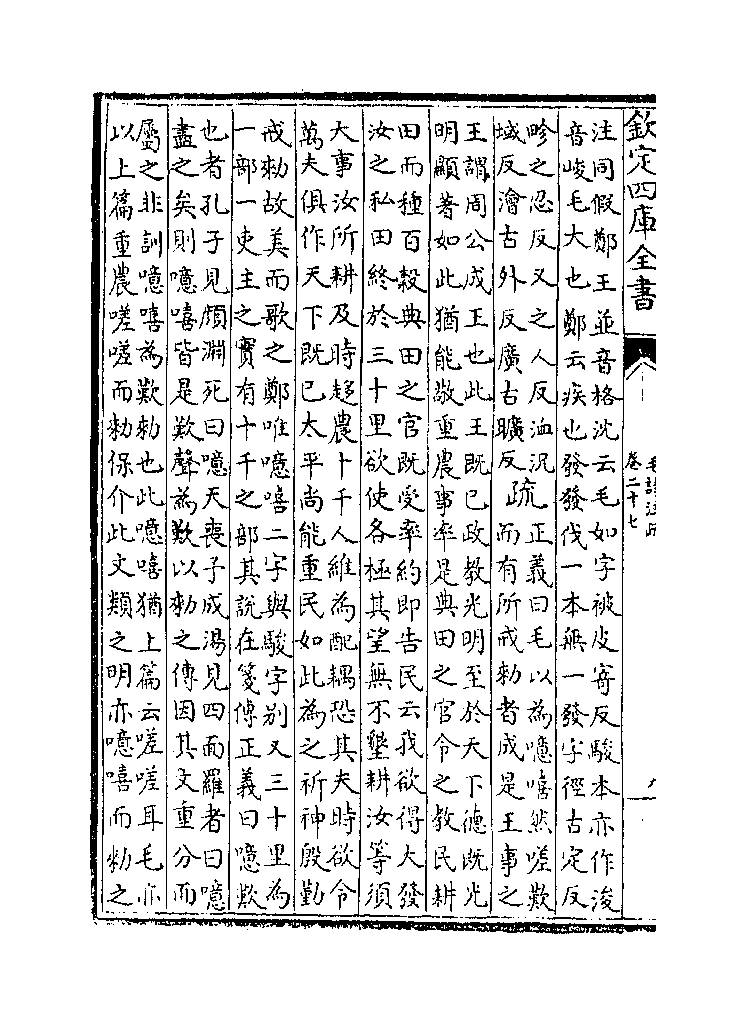 欽定四庫全書
毛詩注疏
卷二十七
注同假鄭王並音格沈云毛如字被皮寄反駿本亦作浚
音峻毛大也鄭云疾也發發伐一本無一發字徑古定反
畛之忍反又之人反洫況
域反澮古外反廣古曠反
疏
正義曰毛以為噫嘻然嗟歎
而有所戒勑者成是王事之
王謂周公成王也此王既已政教光明至於天下德既光
明顯著如此猶能敬重農事率是典田之官令之教民耕
田而種百穀典田之官既受率約即告民云我欲得大發
汝之私田終於三十里欲使各極其望無不墾耕汝等須
大事汝所耕及時趍農十千人維為配耦恐其夫時欲令
萬夫俱作天下既已太平尚能重民如此為之祈神殷勤
戒勑故美而歌之鄭唯噫嘻二字與駿字别又三十里為
一部一吏主之實有十千之部其説在箋傳正義曰噫歎
也者孔子見顔淵死曰噫天喪子成湯見四面羅者曰噫
盡之矣則噫嘻皆是歎聲為歎以勑之傳因其文重分而
屬之非訓噫嘻為歎勑也此噫嘻猶上篇云嗟嗟耳毛亦
以上篇重農嗟嗟而勑保介此文類之明亦噫嘻而勑之